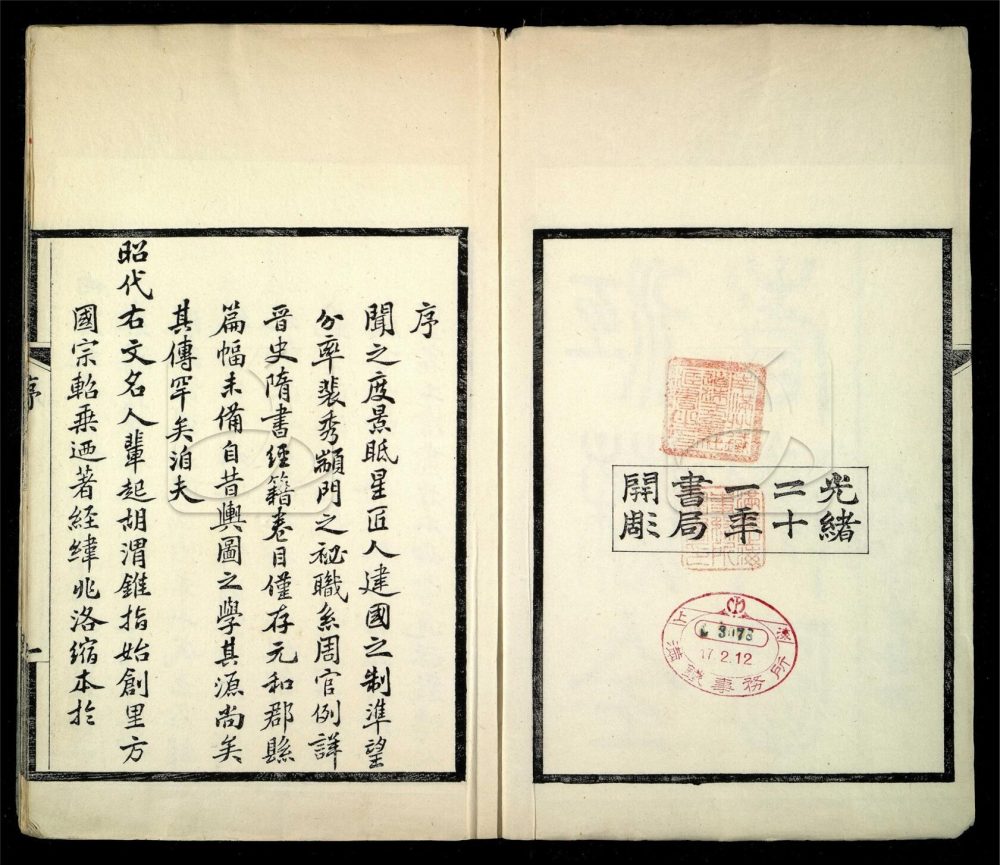 光緒
二十
一年
書局
開彫
上海
滿鉄事務所
17.2.12
序
聞之度景眡星匠人建國之制準望
分率裴秀顓門之祕職系周官例詳
晉史隋書經籍卷目僅存元和郡縣
篇幅未備自昔輿圖之學其源尚矣
其傳罕矣洎夫
昭代右文名人輩起胡渭錐指始創里方
國宗軺乘迺著經緯兆洛縮本於
序
一